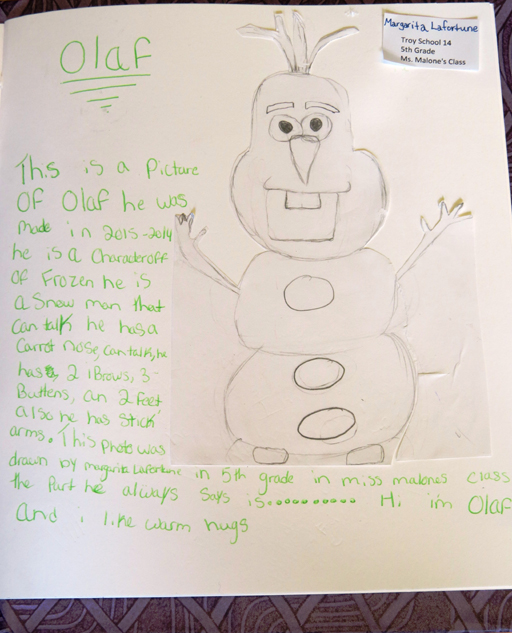 Olaf
Margarita Lafortune
Troy School 14
5th Grade
Ms. Malone's Class
This is a Picture
OF Olaf he was
Made in 2015-2014
he is a Characteroff
of Frozen he is
a Snow man that
can talk he has a
Carrot Nose, can talk, he
has 2 iBrows, 3-
Buttens, an 2 feet
also he has Stick
arms. This photo was
drawn by margarita Lafortune in 5th grade in miss malones class
the Part he always Says is.......... Hi im Olaf
And i like warm hugs